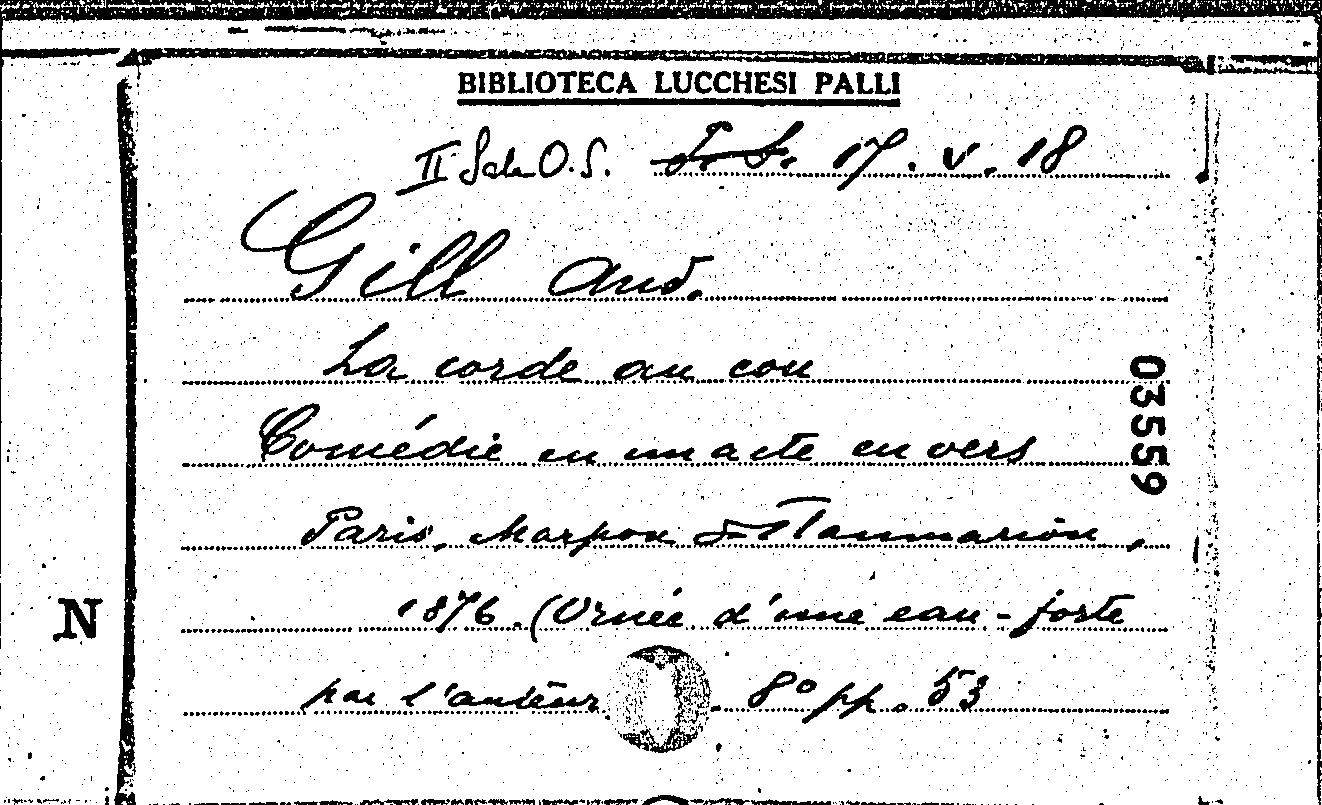 BIBLIOTECA LUCCHESI PALLI
II Sala O.S. F. S. 17. V. 18
Gill And.
La corde au cou
03559
Comédie en un acte en vers
Paris, Marpon & Flammarion,
N
1876. (Ornée d'une eau-forte
par l'auteur. 8° pp. 53